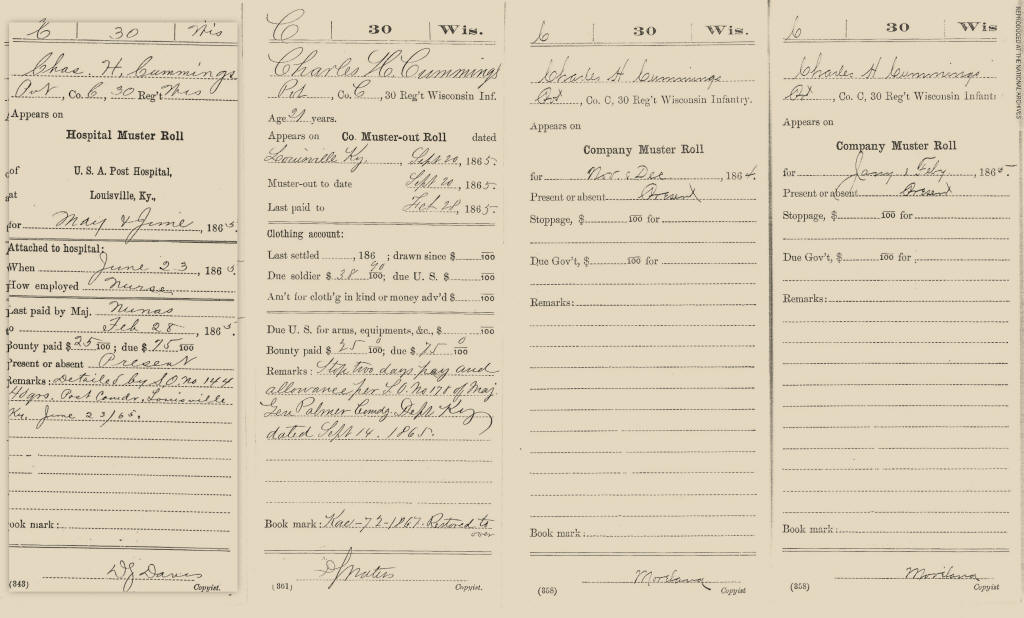 C 30 Wis
Chas. H. Cummings
Pvt, Co. C, 30 Reg't Wis
Appears on
Hospital Muster Roll
of U. S. A. Post Hospital,
at Louisville, Ky.,
for May & June, 1865.
Attached to hospital:
When June 23, 1865.
How employed Nurse
Last paid by Maj. Nunas
to Feb 28, 1865.
Bounty paid $25 100; due $75 100
Present or absent Present
Remarks: Detailed by S.O. no 144
Hdqrs. Post Comdr. Louisville
Ky. June 23/65.
Book mark:
D J Davis
(343) Copyist.
C 30 Wis.
Charles H. Cummings
Pvt, Co. C, 30 Reg't Wisconsin Inf.
Age 21 years.
Appears on Co. Muster-out Roll dated
Louisville Ky. Sept. 20, 1865.
Muster-out to date Sept. 20, 1865.
Last paid to Feb 28, 1865.
Clothing account:
Last settled , 186 ; drawn since $ 100
Due soldier $38 90/100; due U. S. $ 100
Am't for cloth'g in kind or money adv'd $ 100
Due U. S. for arms, equipments, &c., $ 100
Bounty paid $25 0/100; due $75 0/100
Remarks: Stop two days pay and
allowance per S.O. No 178 of Maj.
Gen Palmer Comdg. Dept. Ky
dated Sept 14. 1865.
Book mark: 72-1867. Restored to
over
Copyist.
(361)
C 30 Wis.
Charles H Cummings
Pvt, Co. C, 30 Reg't Wisconsin Infantry.
Appears on
Company Muster Roll
for Nov. & Dec, 1864.
Present or absent Present
Stoppage, $ 100 for
Due Gov't, $ 100 for
Remarks:
Book mark:
Moreland
(358) Copyist
C 30 Wis
Charles H Cummings
Pvt, Co. C, 30 Reg't Wisconsin Infant
Appears on
Company Muster Roll
for Jany & Feby, 1865
Present or absent Present
Stoppage, $ 100 for
Due Gov't, $ 100 for
Remarks:
Book mark:
Moreland
(358) Copyist
REPRODUCED AT THE NATIONAL ARCHIVES